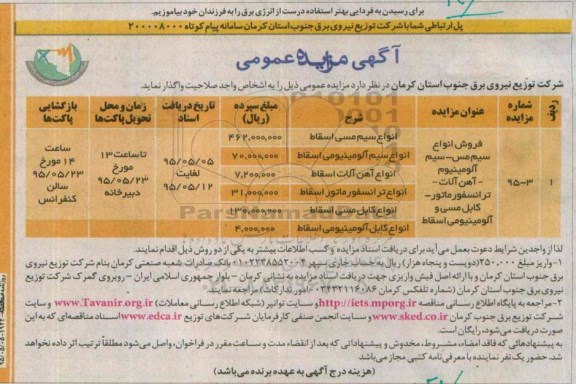 برای رسیدن به فردایی بهتر استفاده درست از انرژی برق را به فرزندان خود بیاموزیم.
پل ارتباطی شما با شرکت توزیع نیروی برق جنوب استان کرمان سامانه پیام کوتاه ۲۰۰۰۰۸۰۰۰
آگهی مزایده عمومی
شرکت توزیع نیروی برق جنوب استان کرمان در نظر دارد مزایده عمومی ذیل را به اشخاص واجد صلاحیت واگذار نماید.
ردیف
شماره مزایده
عنوان مزایده
شرح
مبلغ سپرده (ریال)
تاریخ دریافت اسناد
زمان و محل تحویل پاکت‌ها
بازگشایی پاکت‌ها
۱
۹۵-۳
فروش انواع
سیم مس - سیم
آلومینیوم
- آهن آلات -
ترانسفورماتور -
کابل مسی و
آلومینیومی اسقاط
انواع سیم مسی اسقاط
۴۶۲,۰۰۰,۰۰۰
انواع سیم آلومینیومی اسقاط
۷۰,۰۰۰,۰۰۰
انواع آهن آلات اسقاط
۷,۲۰۰,۰۰۰
انواع ترانسفورماتور اسقاط
۳۱,۰۰۰,۰۰۰
انواع کابل مسی اسقاط
۱۳۰,۰۰۰,۰۰۰
انواع کابل آلومینیومی اسقاط
۴,۰۰۰,۰۰۰
۹۵/۰۵/۰۵
لغایت
۹۵/۰۵/۱۲
تا ساعت ۱۳
مورخ
۹۵/۰۵/۲۳
دبیرخانه
ساعت
۱۴ مورخ
۹۵/۰۵/۲۳
سالن
کنفرانس
لذا واجدین شرایط دعوت بعمل می‌آید برای دریافت اسناد مزایده و کسب اطلاعات بیشتر به یکی از دو روش ذیل اقدام نمایند.
۱- واریز مبلغ ۲۵۰,۰۰۰ (دویست و پنجاه هزار) ریال به حساب جاری سپهر بانک صادرات شعبه صنعتی کرمان بنام شرکت توزیع نیروی
برق جنوب استان کرمان و با ارائه اصل فیش واریزی جهت دریافت اسناد مزایده به نشانی کرمان - بلوار جمهوری اسلامی ایران - روبروی گمرک شرکت توزیع
نیروی برق جنوب استان کرمان (شماره تلفکس کرمان ۰۳۴۳۲۱۱۶۰۸۶ - امور تدارکات) مراجعه نمایند.
۲- مراجعه به پایگاه اطلاع رسانی مناقصه http://iets.mporg.ir و سایت توانیر (شبکه اطلاع رسانی معاملات) www.Tavanir.org.ir و سایت
شرکت توزیع برق جنوب کرمان www.sked.co.ir و سایت انجمن صنفی کارفرمایان شرکت‌های توزیع www.edca.ir اسناد مناقصه‌ای که به این
صورت دریافت می‌شود، رایگان است.
به پیشنهادهائی که فاقد امضاء، مشروط، مخدوش و پیشنهاداتی که بعد از انقضاء مدت و ساعت مقرر در فراخوان، واصل می‌شود مطلقاً ترتیب اثر داده نخواهد
شد. حضور یک نفر نماینده با معرفی‌نامه کتبی مجاز می‌باشد
(هزینه درج آگهی به عهده برنده می‌باشد)